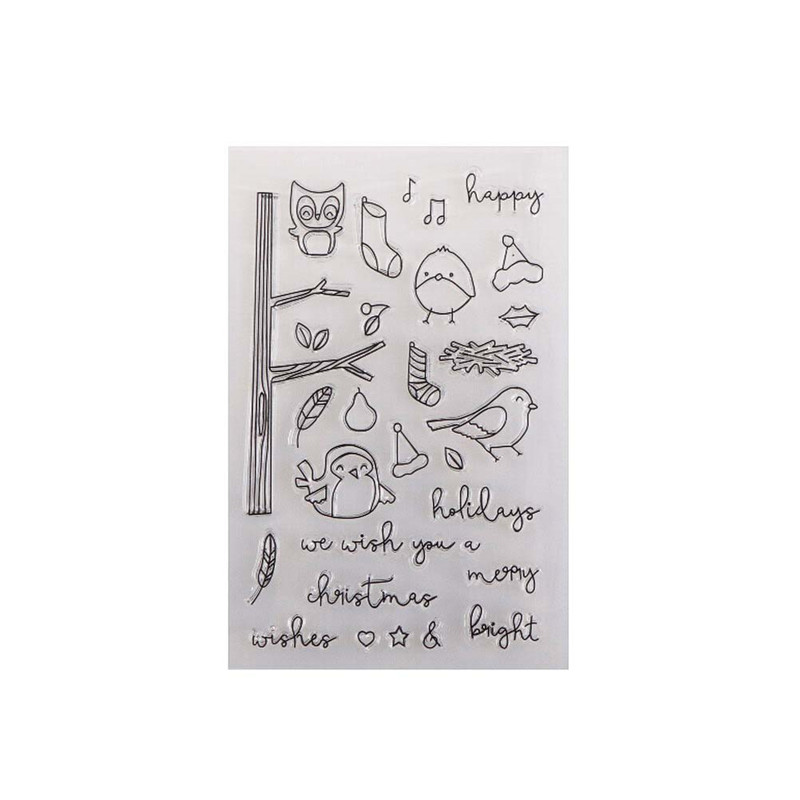 happy
holidays
we wish you a
merry
christmas
wishes & bright